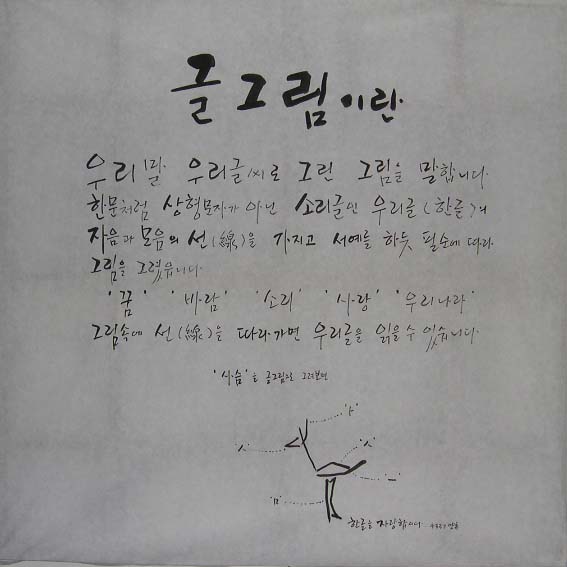 글그림이란
우리말 우리글씨로 그린 그림을 말합니다.
한문처럼 상형문자가 아닌 소리글인 우리글(한글)의
자음과 모음의 선(線)을 가지고 서예를 하듯 필순에 따라
그림을 그렸습니다.
'꿈' '바람' '소리' '사랑' '우리나라'
그림속에 선(線)을 따라가면 우리글을 읽을 수 있습니다.
'사슴'을 글그림으로 그려보면
'ㅏ'
'ㅅ' 'ㅅ'
'ㅁ'
한글을 사랑합니다